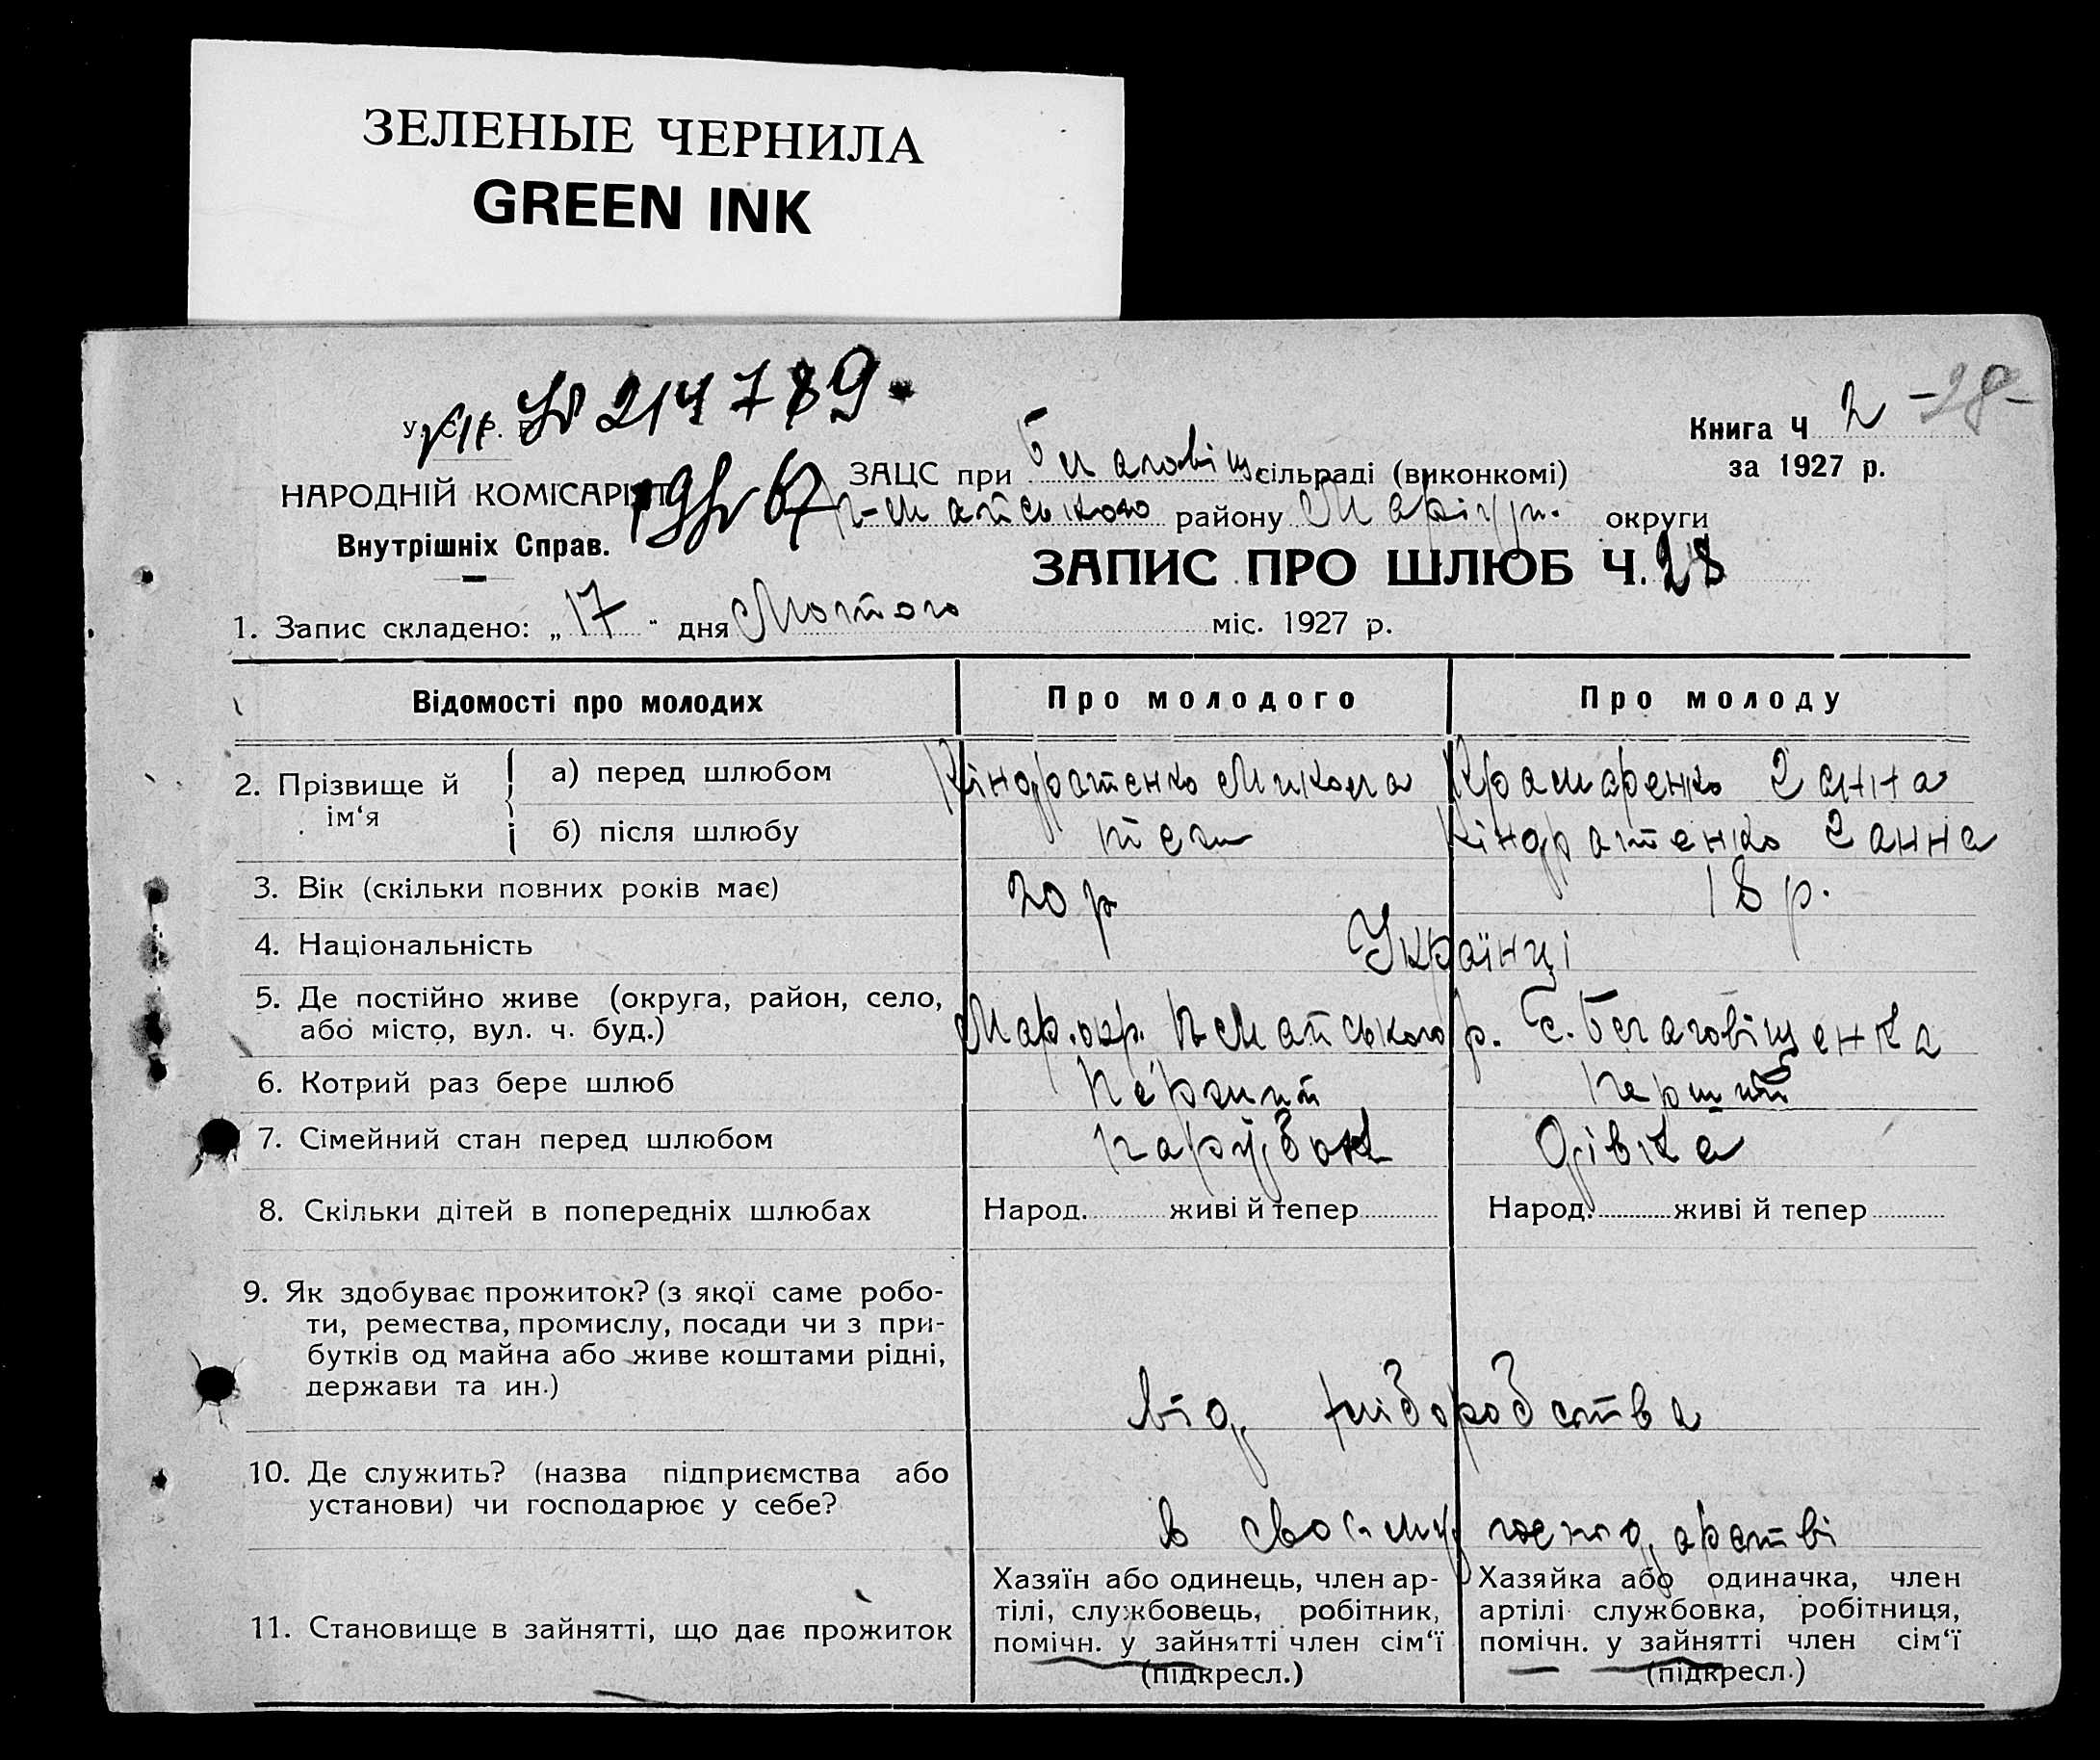 ЗЕЛЕНЫЕ ЧЕРНИЛА
GREEN INK
№ 214789.
У. С. Р. Р.
Книга Ч 2 -28-
за 1927 р.
НАРОДНІЙ КОМІСАРІЯТ
Внутрішніх Справ.
ЗАЦС при Благовіщ. сільраді (виконкомі)
П-Майського району Маріуп. округи
ЗАПИС ПРО ШЛЮБ Ч. 28
1. Запис складено: „17" дня Лютого міс. 1927 р.
Відомості про молодих Про молодого Про молоду
2. Прізвище й ім‘я а) перед шлюбом Кіндратенко Микола Крамаренко Ганна
б) після шлюбу теж Кіндратенко Ганна
3. Вік (скільки повних років має) 20 р 18 р.
4. Національність Українці
5. Де постійно живе (округа, район, село,
або місто, вул. ч. буд.) Мар. окр. П-Майського р. С. Благовіщенка
6. Котрий раз бере шлюб Перший перший
7. Сімейний стан перед шлюбом парубок Дівка
8. Скільки дітей в попередніх шлюбах Народ. живі й тепер Народ. живі й тепер
9. Як здобуває прожиток? (з якої саме робо-
ти, ремества, промислу, посади чи з при-
бутків од майна або живе коштами рідні,
держави та ин.)
від хліборобства
10. Де служить? (назва підприємства або
установи) чи господарює у себе?
в своєму господарстві
11. Становище в зайнятті, що дає прожиток
Хазяїн або одинець, член ар-
тілі, службовець, робітник,
помічн. у зайнятті член сім‘ї
(підкресл.)
Хазяйка або одиначка, член
артілі службовка, робітниця,
помічн. у зайнятті член сім‘ї
(підкресл.)